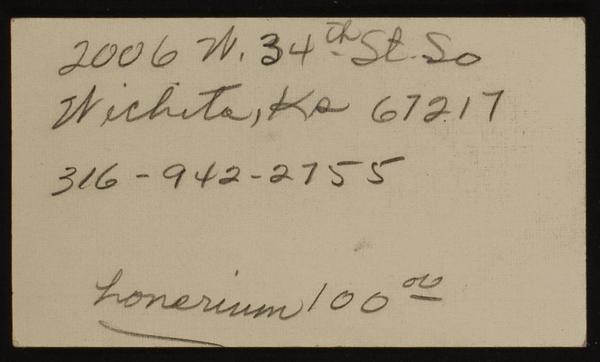 2006 W. 34th St. So
Wichita, Ks 67217
316-942-2755
honerium 100 00